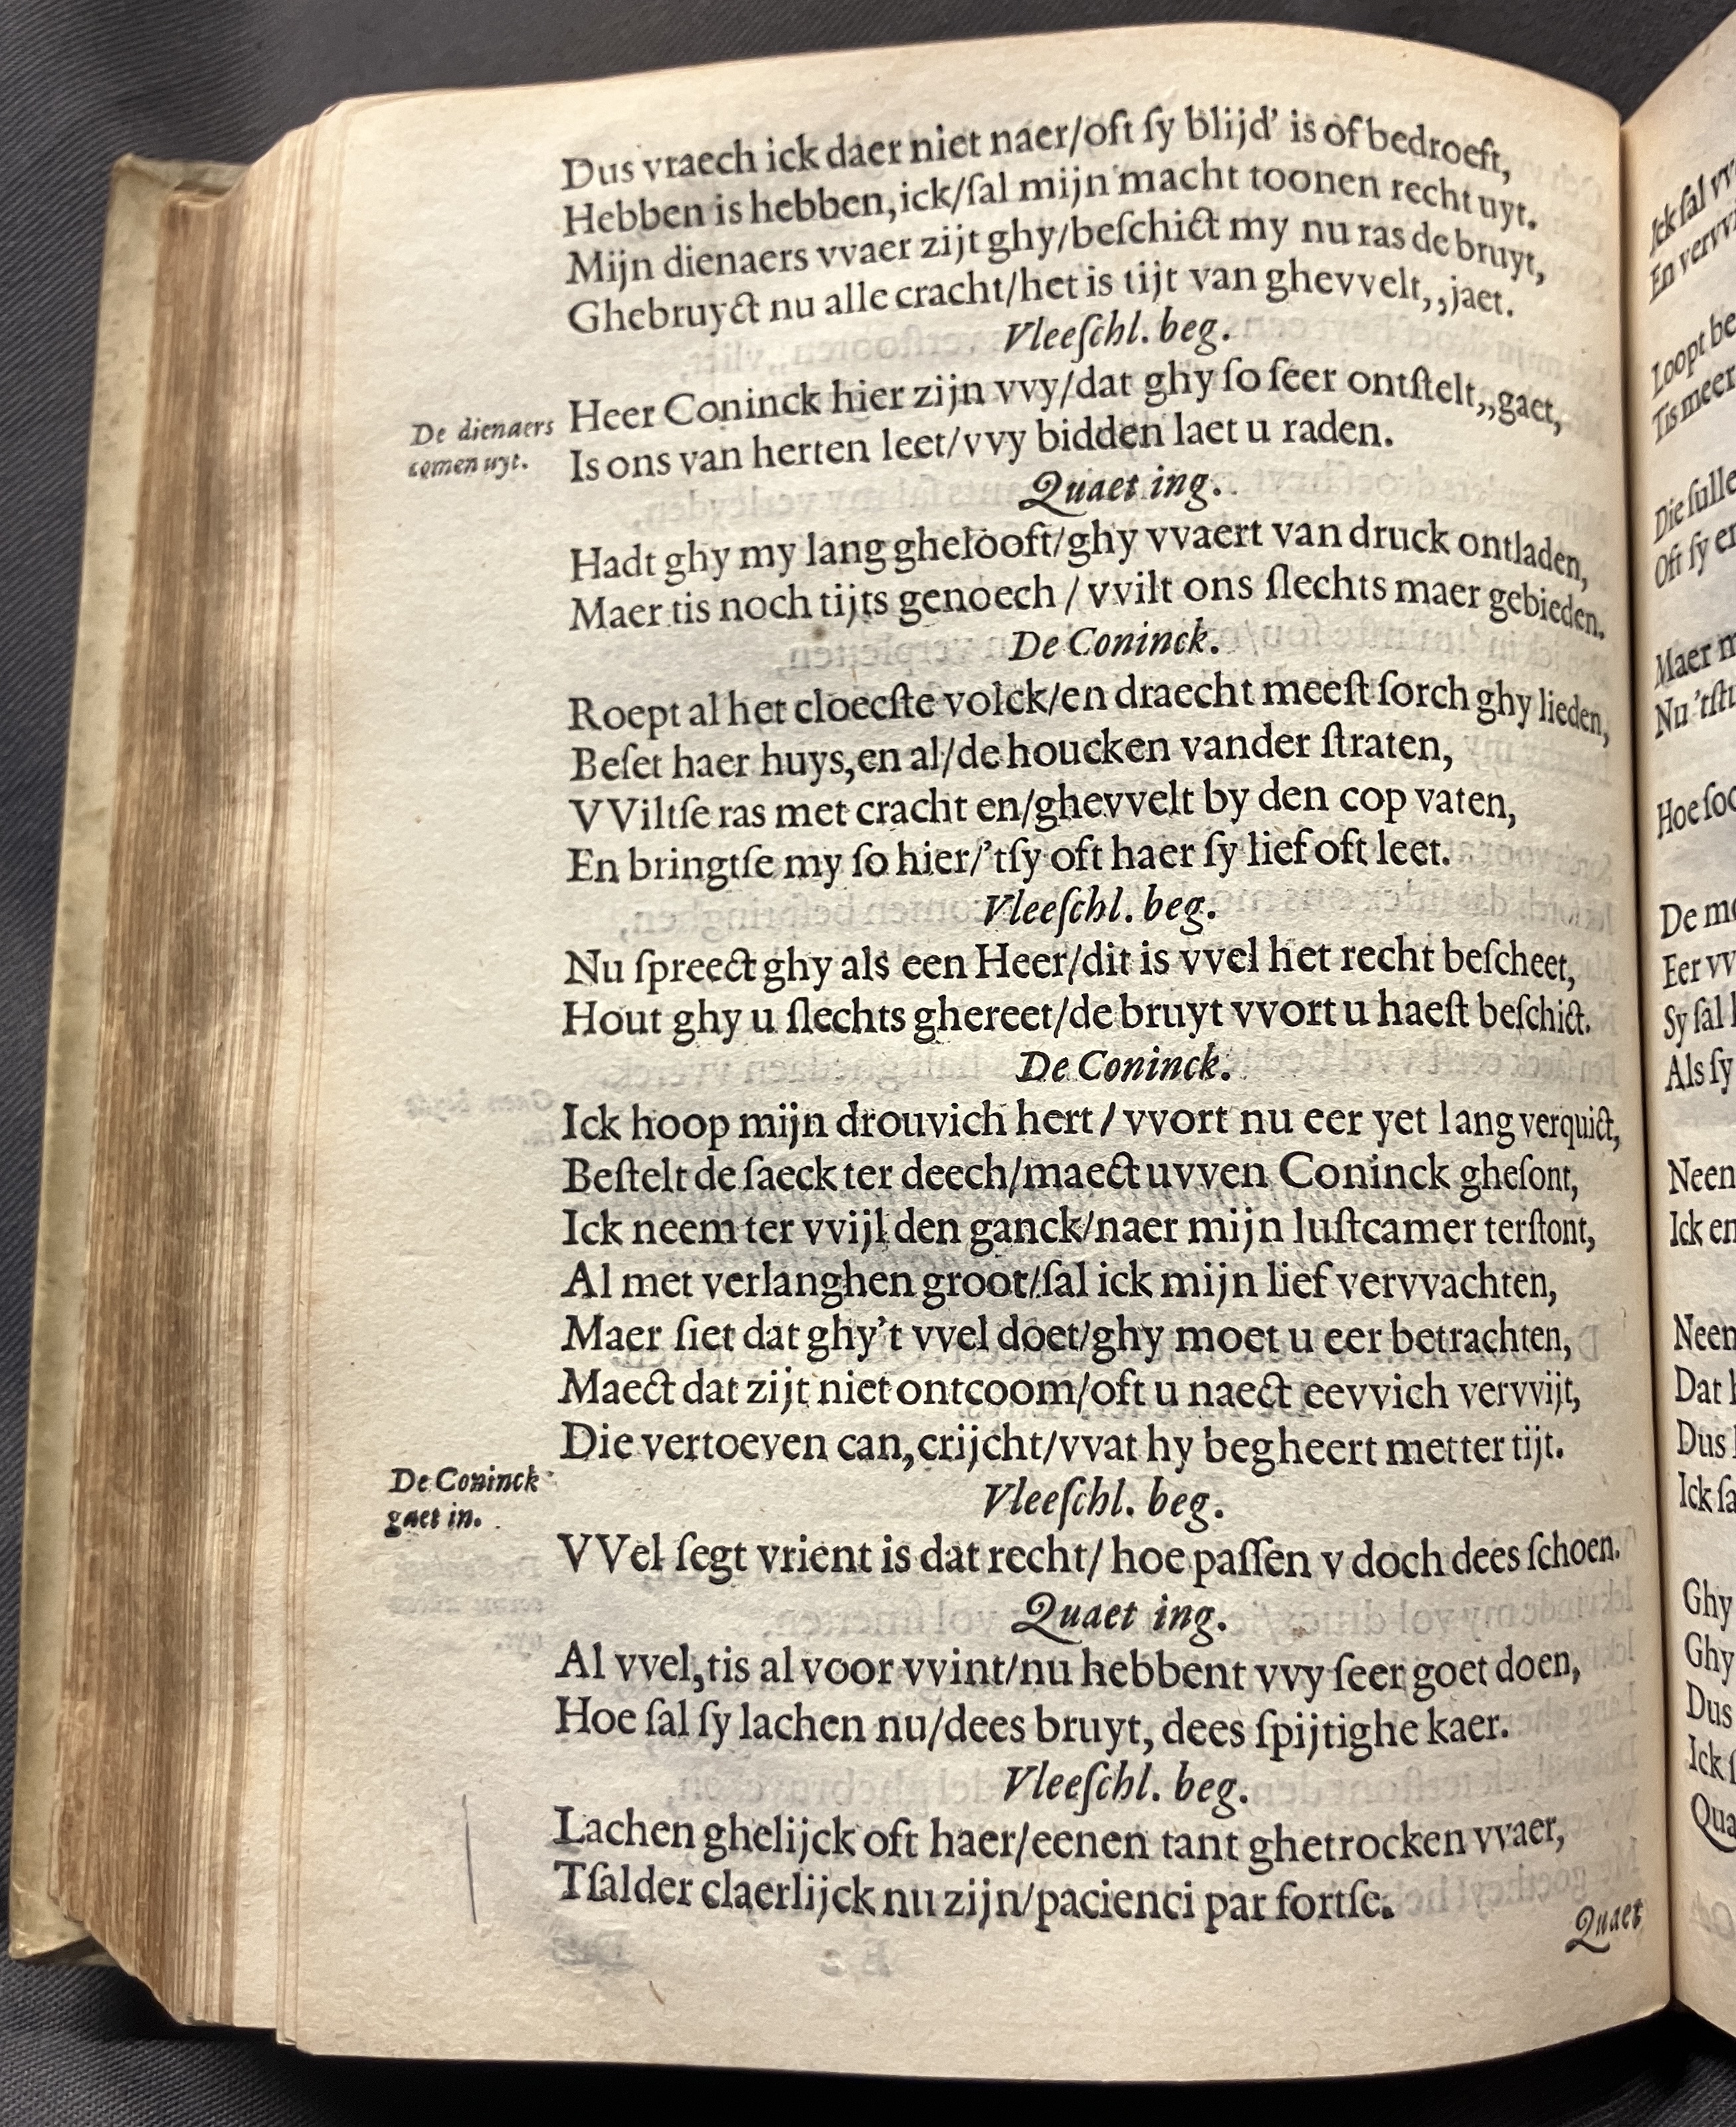 Dus vraech ick daer niet naer/oft ſy blijd' is of bedroeft,
Hebben is hebben,ick/ſal mijn macht toonen recht uyt.
Mijn dienaers vvaer zijt ghy/beſchict my nu ras de bruyt,
Ghebruyct nu alle cracht/het is tijt van ghevvelt,,jaet.
Vleeſchl. beg.
De dienaers
comen uyt.
Heer Coninck hier zijn vvy/dat ghy ſo ſeer ontſtelt,,gaet,
Is ons van herten leet/vvy bidden laet u raden.
Quaet ing.
Hadt ghy my lang ghelooft/ghy vvaert van druck ontladen,
Maer tis noch tijts genoech / vvilt ons ſlechts maer gebieden.
De Coninck.
Roept al het cloecſte volck/en draecht meeſt ſorch ghy lieden,
Beſet haer huys,en al/de houcken vander ſtraten,
VViltſe ras met cracht en/ghevvelt by den cop vaten,
En bringtſe my ſo hier/'tſy oft haer ſy lief oft leet.
Vleeſchl. beg.
Nu ſpreect ghy als een Heer/dit is vvel het recht beſcheet,
Hout ghy u ſlechts ghereet/de bruyt vvort u haeſt beſchict.
De Coninck.
Ick hoop mijn drouvich hert / vvort nu eer yet lang verquict,
Beſtelt de ſaeck ter deech/maect uvven Coninck gheſont,
Ick neem ter vvijl den ganck/naer mijn luſtcamer terſtont,
Al met verlanghen groot/ſal ick mijn lief vervvachten,
Maer ſiet dat ghy't vvel doet/ghy moet u eer betrachten,
Maect dat zijt niet ontcoom/oft u naect eevvich vervvijt,
Die vertoeven can,crijcht/vvat hy begheert metter tijt.
De Coninck
gaet in.
Vleeſchl. beg.
VVel ſegt vrient is dat recht/ hoe paſſen v doch dees ſchoen.
Quaet ing.
Al vvel,tis al voor vvint/nu hebbent vvy ſeer goet doen,
Hoe ſal ſy lachen nu/dees bruyt, dees ſpijtighe kaer.
Vleeſchl. beg.
Lachen ghelijck oft haer/eenen tant ghetrocken vvaer,
Tſalder claerlijck nu zijn/pacienci par fortſe.
Quaet
Ick ſal
En
Loopt
Tis meer
Die
Oft ſy
Maer
Nu
Hoe
De
Eer
Sy ſal
Als ſy
Neen
Ick
Neen
Dat
Dus
Ick
Ghy
Ghy
Dus
Ick